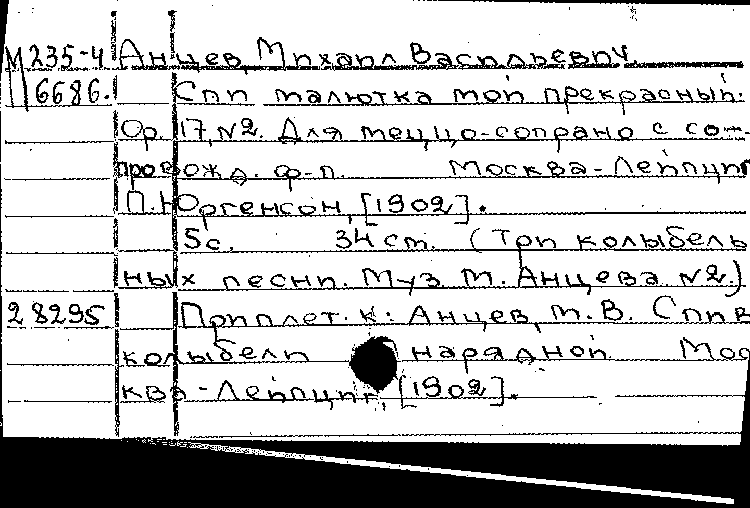 М235-4 Анцев, Михаил Васильевич.
П6686. Спи малютка мой прекрасный.
Op. 17, N2. Для меццо-сопрано с со-
провожд. ф-п. Москва-Лейпциг
П. Юргенсон, [1902].
5с. 34 cm. (Три колыбель
ных песни. Муз М. Анцева N2.)
28295 Приплет. к: Анцев, М. В. Спи в
колыбели нарядной Мос
ква-Лейпциг, [1902].